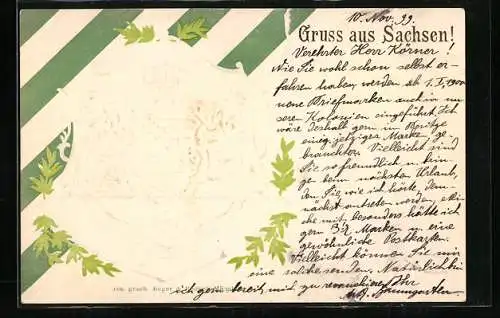 10. Nov. 99.
Gruss aus Sachsen!
Verehrter Herr Körner!
Wie Sie wohl schon selbst er-
fahren haben, werden ab 1. I. 1900
neue Briefmarken auch in un
seren Kolonien eingeführt. Ich
wäre deshalb gern im Besitze
einig. jetziger Marken, ge-
brauchter. Vielleicht sind
Sie so freundlich u. brin-
gen beim nächsten Urlaub,
den Sie, wie ich hörte, dem-
nächst antreten werden, etliche
mit, besonders hätte ich
gern 3 Marken u. eine
gewöhnliche Postkarte.
Vielleicht können Sie mir
eine solche senden. Natürlich bin
ich gern bereit, mit zu revanchieren. Ihr
Baumgarten